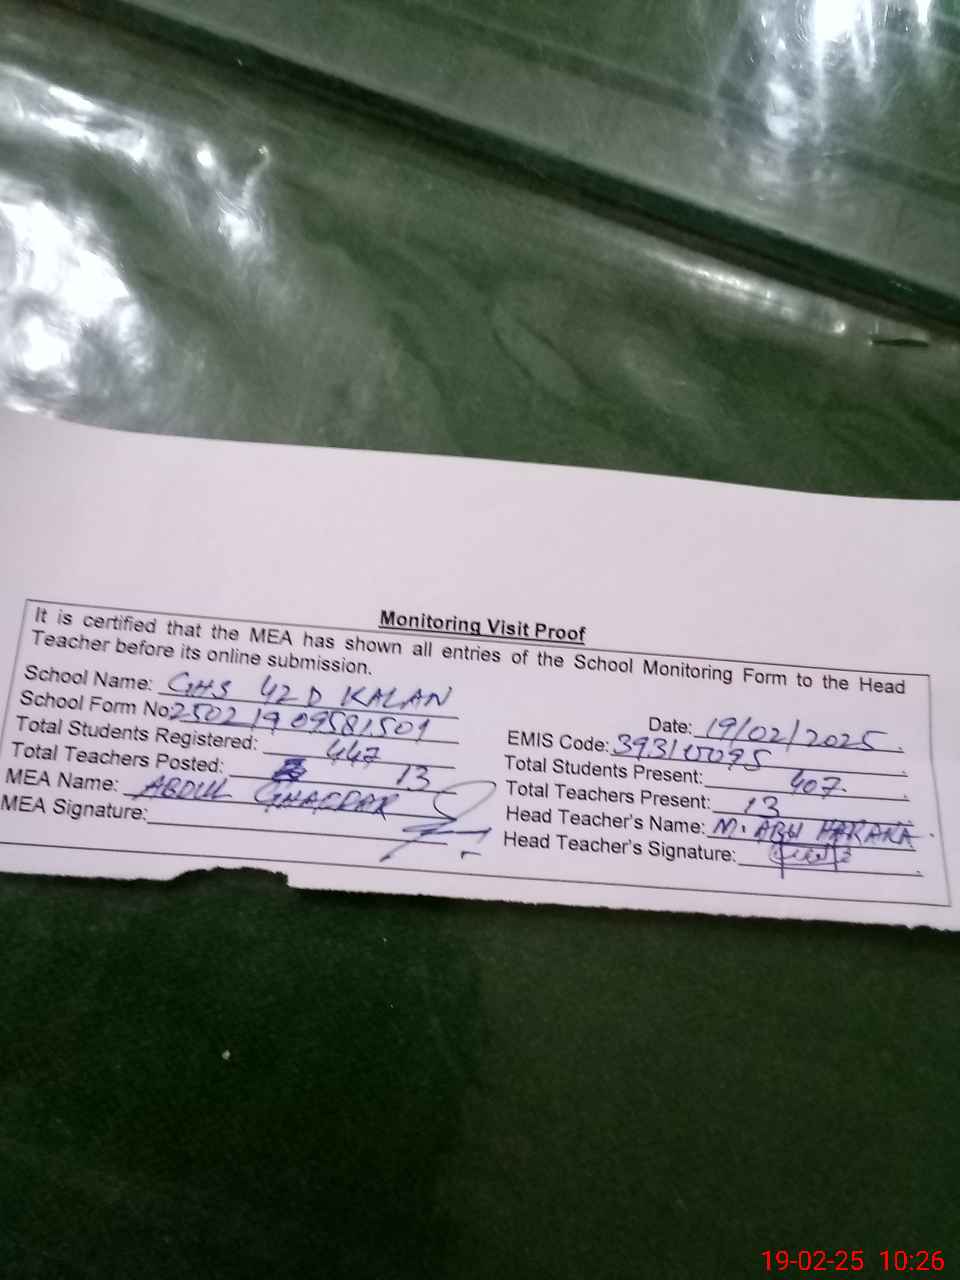 Monitoring Visit Proof
It is certified that the MEA has shown all entries of the School Monitoring Form to the Head
Teacher before its online submission.
School Name: GHS 42 D KALAN
Date: 19/02/2025
School Form No: 25021909581501
EMIS Code: 39310095
Total Students Registered: 447
Total Students Present: 407
Total Teachers Posted: 13
Total Teachers Present: 13
MEA Name: ABDUL GHAFFAR
Head Teacher's Name: M. ABU HARARA
MEA Signature:
Head Teacher's Signature:
19-02-25 10:26